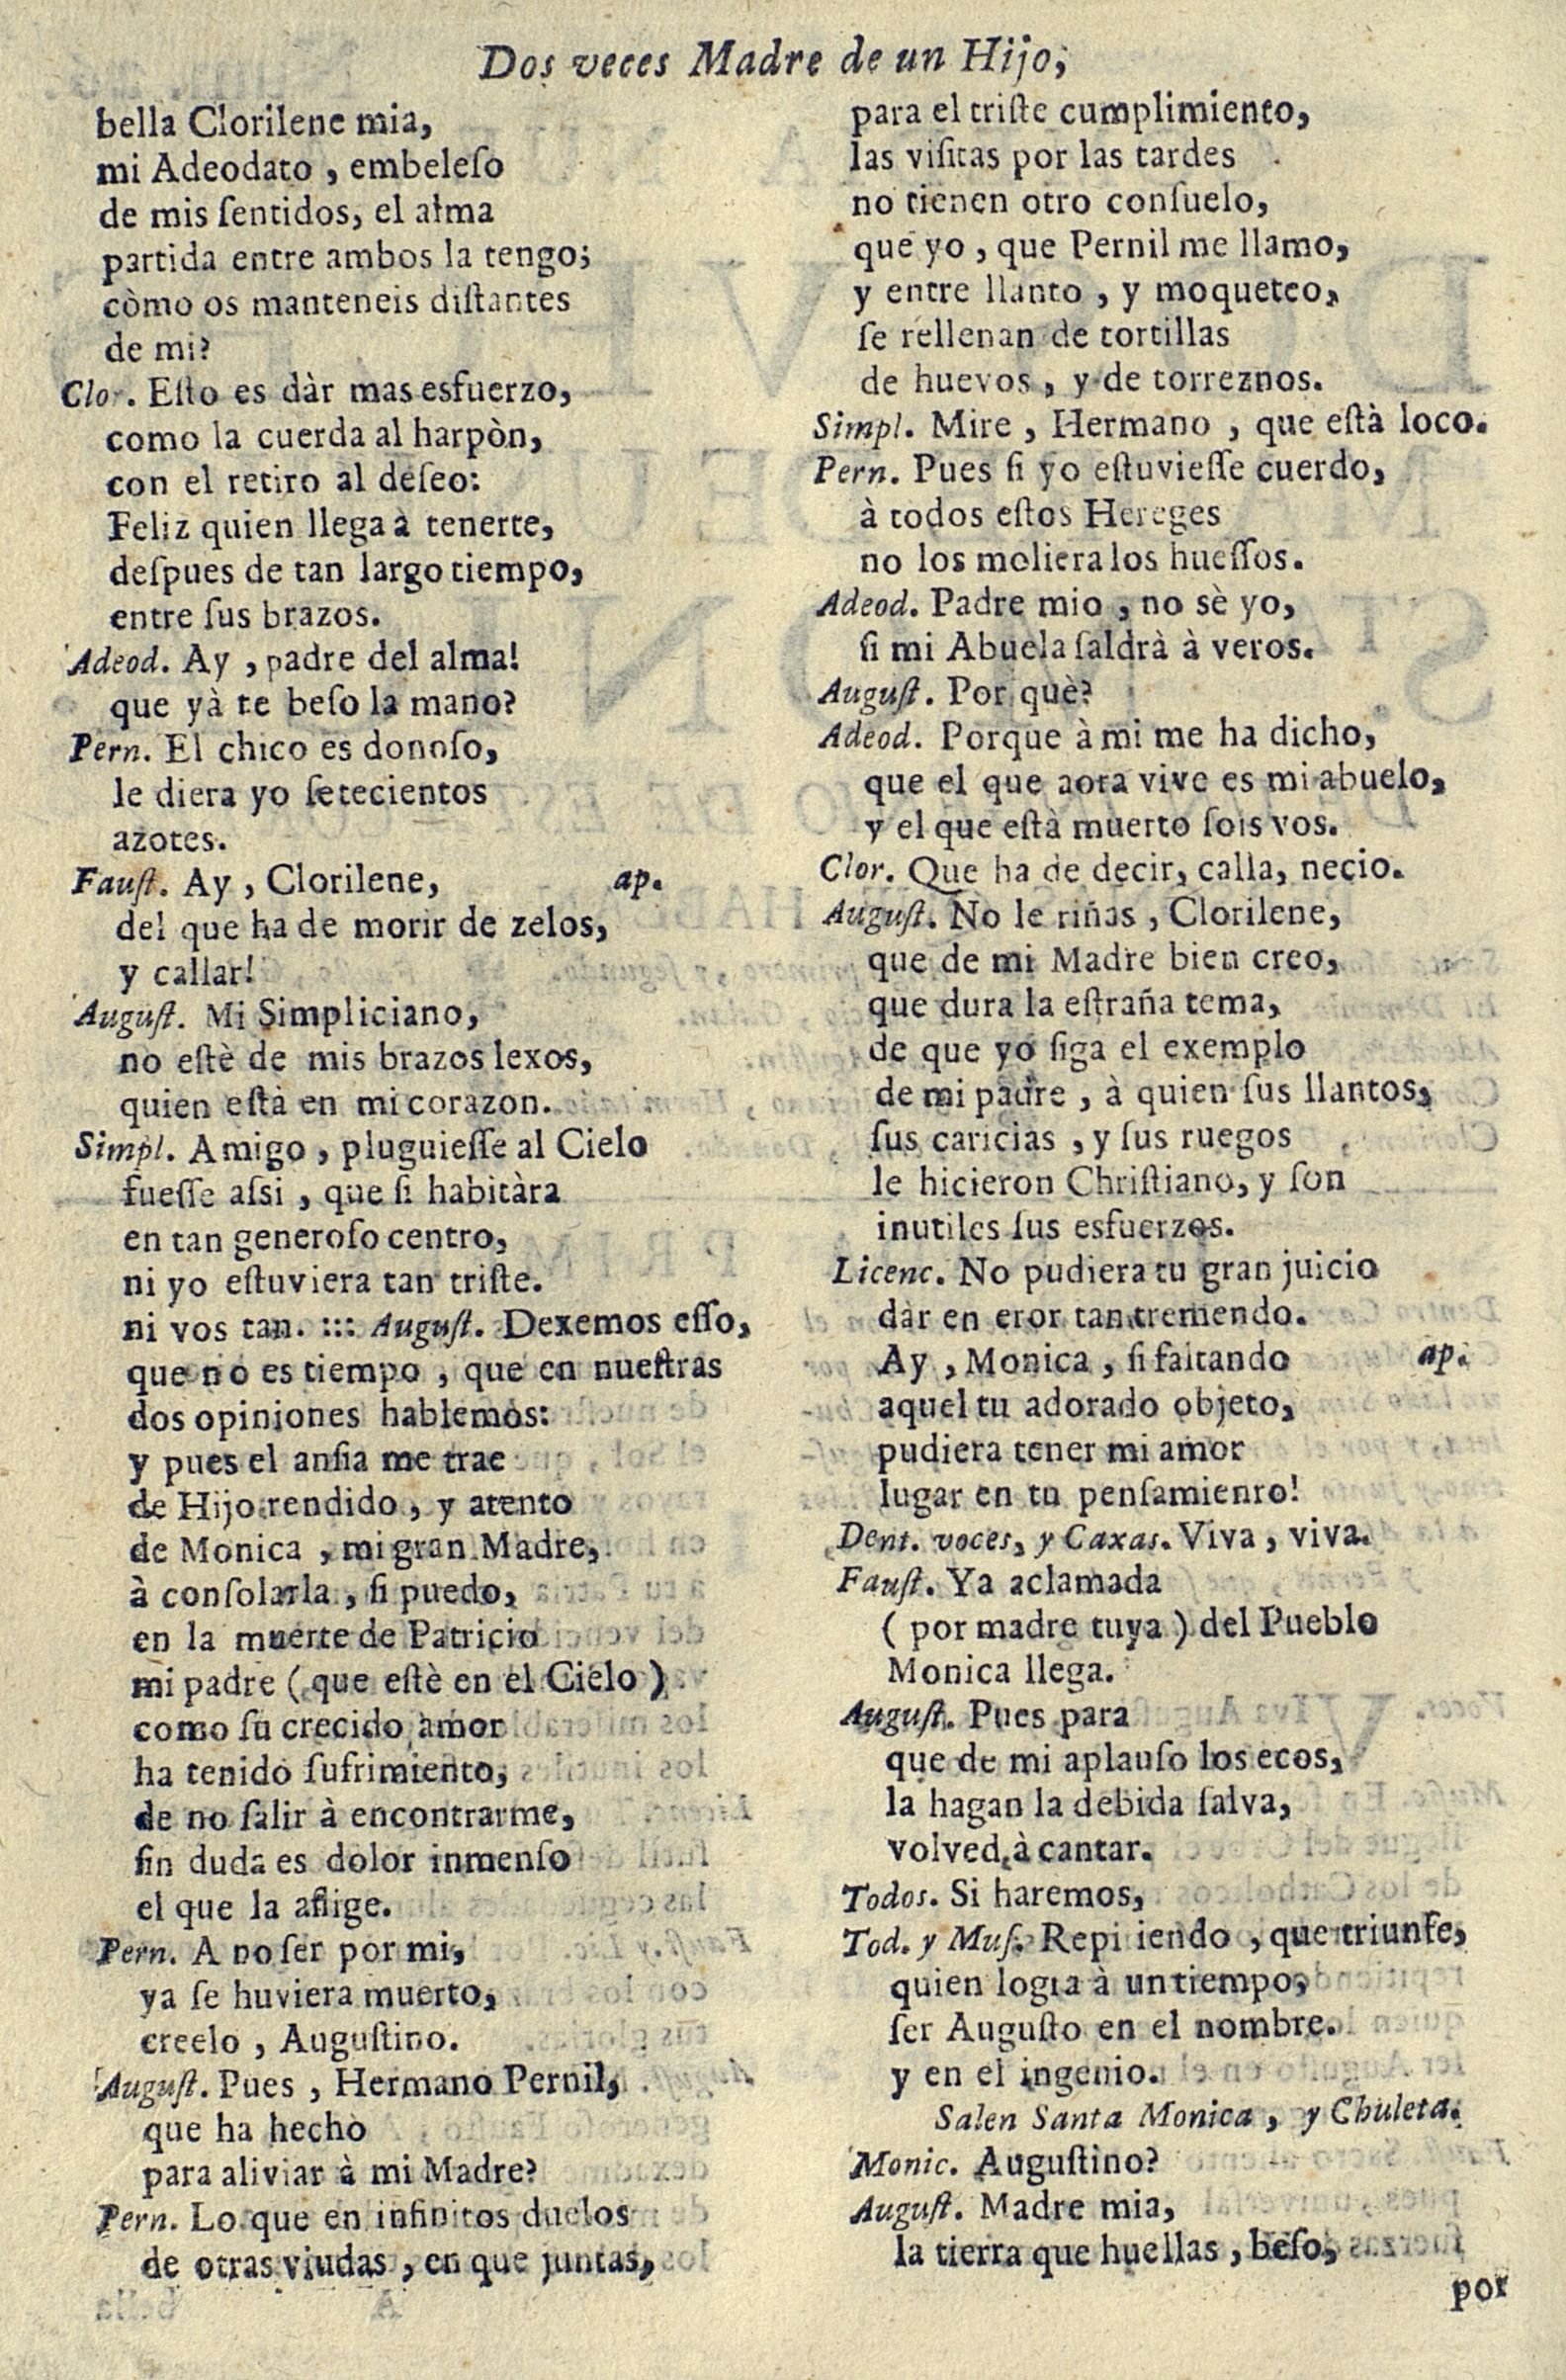 Dos veces Madre de un Hijo,
bella Clorilene mia,
mi Adeodato , embeleſo
de mis ſentidos, el alma
partida entre ambos la tengo;
còmo os manteneis diſtantes
de mi?
Clor. Eſto es dàr mas esfuerzo,
como la cuerda al harpòn,
con el retiro al deſeo:
Feliz quien llega à tenerte,
deſpues de tan largo tiempo,
entre ſus brazos.
Adeod. Ay , padre del alma!
que yà te beſo la mano?
Pern. El chico es donoſo,
le diera yo ſetecientos
azotes.
Fauſt. Ay , Clorilene, ap.
del que ha de morir de zelos,
y callar!
Auguſt. Mi Simpliciano,
no eſtè de mis brazos lexos,
quien eſtà en mi corazon.
Simpl. Amigo , pluguieſſe al Cielo
fueſſe aſsi , que ſi habitàra
en tan generoſo centro,
ni yo eſtuviera tan triſte.
ni vos tan. ::: Auguſt. Dexemos eſſo,
que no es tiempo , que en nueſtras
dos opiniones hablemos:
y pues el anſia me trae
de Hijo rendido , y atento
de Monica , mi gran Madre,
à conſolarla , ſi puedo,
en la muerte de Patricio
mi padre ( que eſtè en el Cielo )
como ſu crecido amor
ha tenido ſufrimiento,
de no ſalir à encontrarme,
ſin duda es dolor inmenſo
el que la aflige.
Pern. A no ſer por mi,
ya ſe huviera muerto,
creelo , Auguſtino.
Auguſt. Pues , Hermano Pernil,
que ha hecho
para aliviar à mi Madre?
Pern. Lo que en infinitos duelos
de otras viudas , en que juntas,
para el triſte cumplimiento,
las viſitas por las tardes
no tienen otro conſuelo,
que yo , que Pernil me llamo,
y entre llanto , y moqueteo,
ſe rellenan de tortillas
de huevos , y de torreznos.
Simpl. Mire , Hermano , que eſtà loco.
Pern. Pues ſi yo eſtuvieſſe cuerdo,
à todos eſtos Hereges
no los moliera los hueſſos.
Adeod. Padre mio , no sè yo,
ſi mi Abuela ſaldrà à veros.
Auguſt. Por què?
Adeod. Porque à mi me ha dicho,
que el que aora vive es mi abuelo,
y el que eſtà muerto ſois vos.
Clor. Que ha de decir, calla, necio.
Auguſt. No le riñas , Clorilene,
que de mi Madre bien creo,
que dura la eſtraña tema,
de que yo ſiga el exemplo
de mi padre , à quien ſus llantos,
ſus caricias , y ſus ruegos
le hicieron Chriſtiano, y ſon
inutiles ſus esfuerzos.
Licenc. No pudiera tu gran juicio
dàr en eror tan tremendo.
Ay , Monica , ſi faltando ap.
aquel tu adorado objeto,
pudiera tener mi amor
lugar en tu penſamienro!
Dent. voces, y Caxas. Viva , viva.
Fauſt. Ya aclamada
( por madre tuya ) del Pueblo
Monica llega.
Auguſt. Pues para
que de mi aplauſo los ecos,
la hagan la debida ſalva,
volved à cantar.
Todos. Si haremos,
Tod. y Muſ. Repi iendo , que triunfe,
quien logra à un tiempo,
ſer Auguſto en el nombre.
y en el ingenio.
Salen Santa Monica , y Chuleta.
Monic. Auguſtino?
Auguſt. Madre mia,
la tierra que huellas , beſo,
por